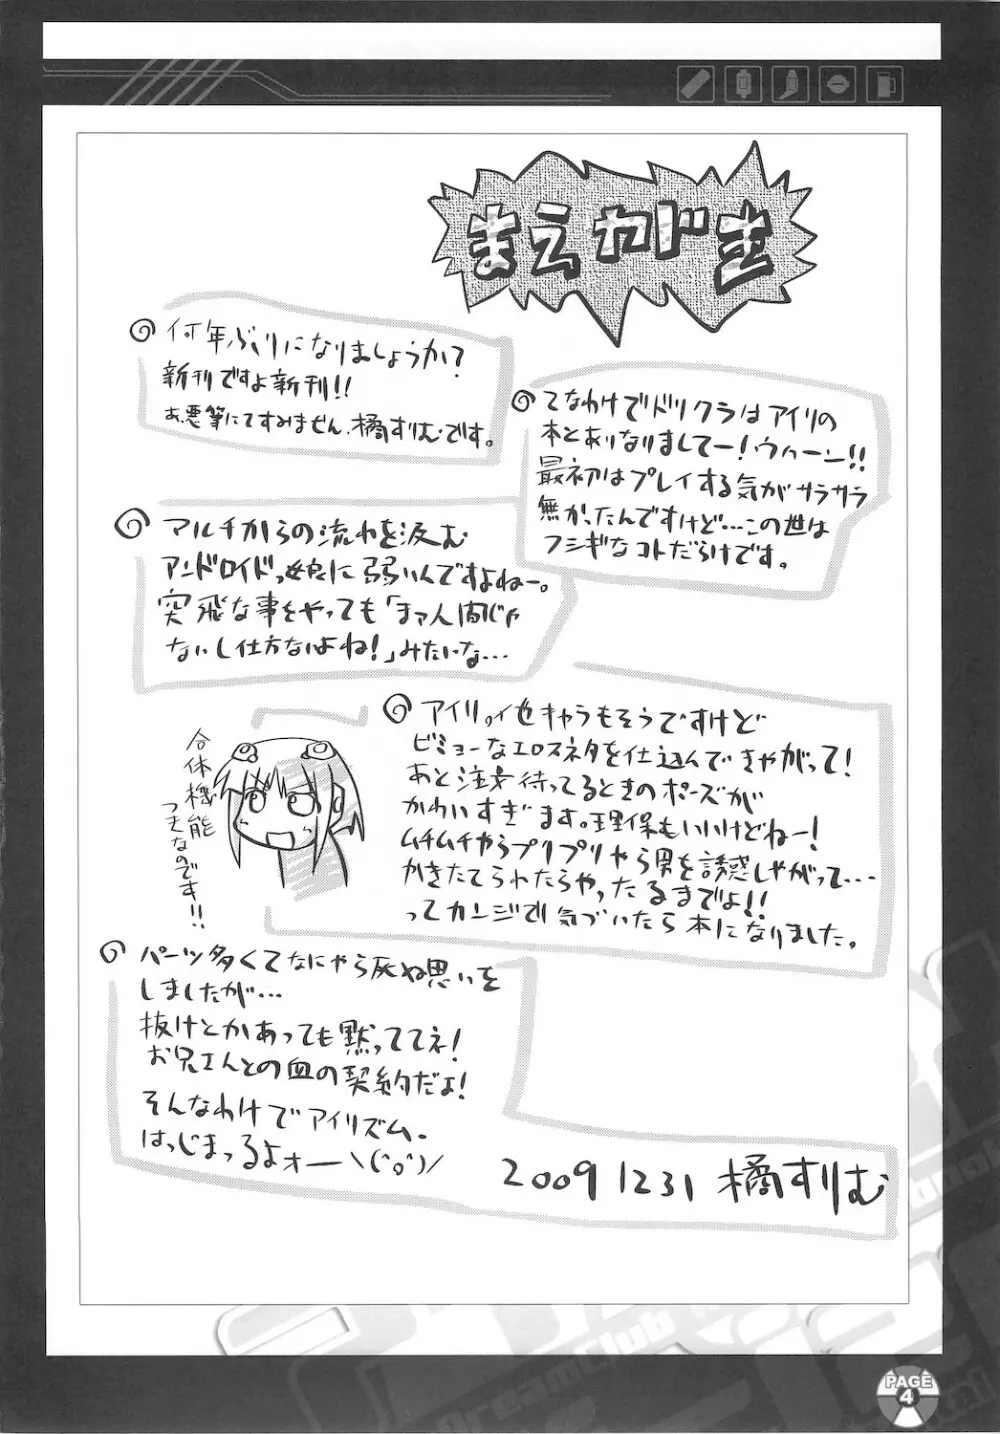 まえがき
何年ぶりになりましょうか?
新刊ですよ新刊!!
あ、悪筆にてすみません、橘すりむです。
てなわけでドリクラはアイリの
本とありなりましてー!ウハーン!!
最初はプレイする気がサラサラ
無かったんですけど…この世は
フシギなコトだらけです。
マルチからの流れを汲む
アンドロイドっ娘に弱いんですよねー。
突飛な事をやっても「まァ人間じゃ
ないし仕方ないよね!」みたいな…
アイリの他キャラもそうですけど
ビミョーなエロスネタを仕込んできやがって!
あと注文待ってるときのポーズが
かわいすぎます。理保もいいけどねー!
ムチムチやらプリプリやら男を誘惑しやがって…
かきたてられたらやったるまでよ!!
ってカンジで気づいたら本になりました。
合体機能
つきなのです!!
パーツ多くてなにやら死ぬ思いを
しましたが…
抜けとかあっても黙っててネ!
お兄さんとの血の契約だよ!
そんなわけでアイリズム、
はっじまっるよォー\(^o^)/
2009 1231 橘すりむ
PAGE
4